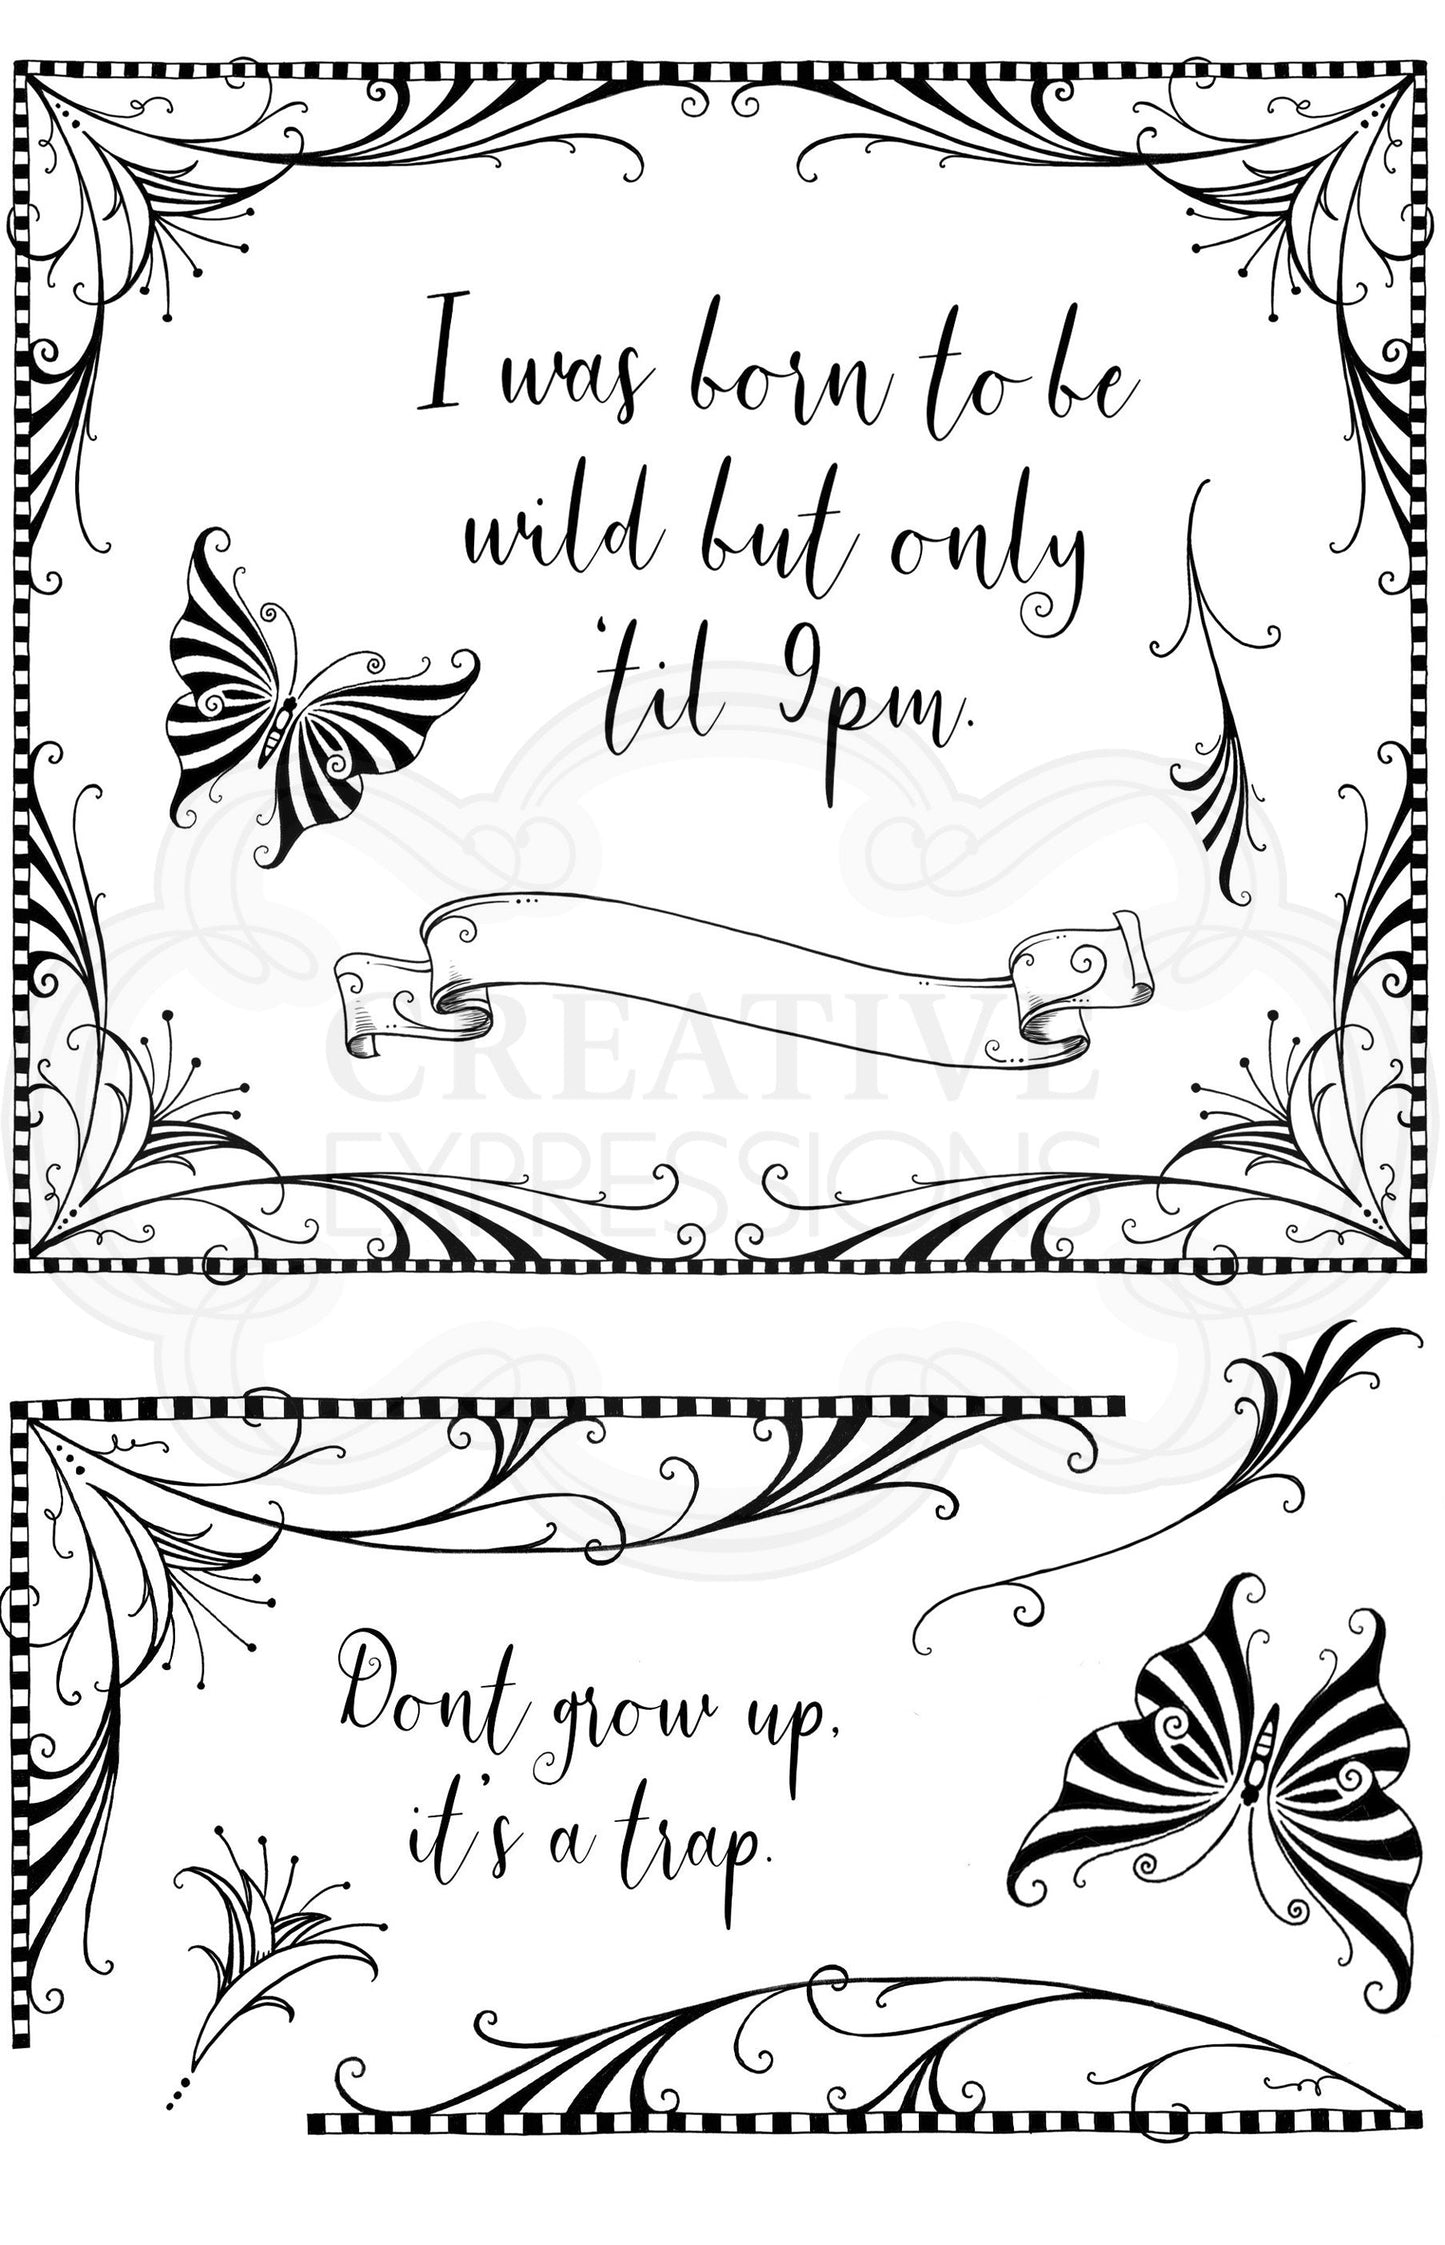 I was born to be
wild but only
'til 9pm.
CREATIVE
EXPRESSIONS
Dont grow up,
it's a trap.